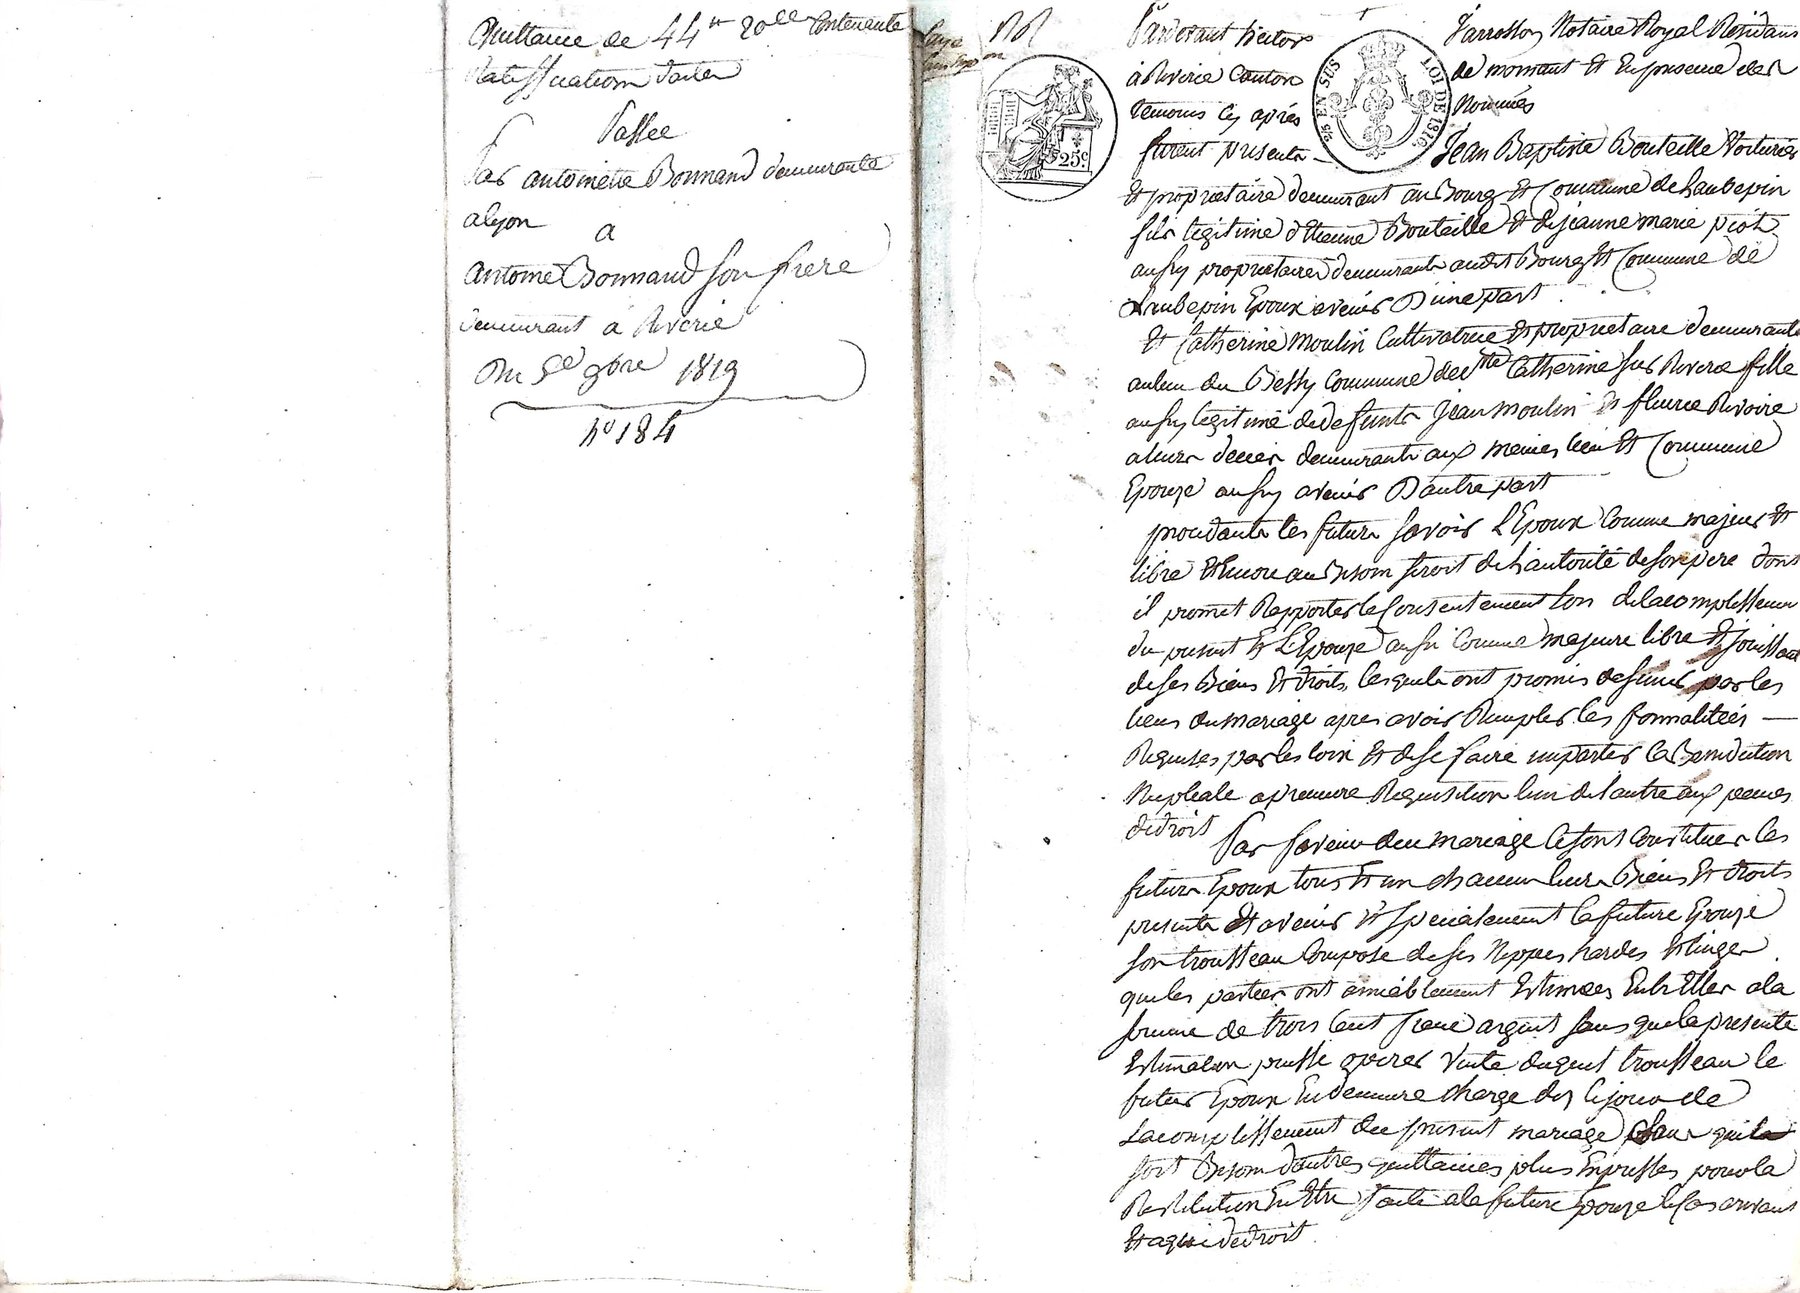 Quittance de 44# 20cc Contenente
Ratiffication Faite
Passée
Par antoinette Bonnand demeurante
a lyon
a
antoine Bonnand son frere
demeurant a Riverie
Du 5e 9bre 1819
no 184
Pardevant hector Parrossoy Notaire Royal Résidans
à Riverie Canton de mornant Et En presence des
temoins Cy après Nommés
furent presents Jean Baptiste Bouteille Voiturier
EN SUS
LOI DE 1816
25c
Et propriétaire demeurant au Bourg Et Commune de Laubepin
fils légitime d'Etienne Bouteille Et de jeanne marie piot
aussy propriétaires demeurants audit Bourg Et Commune de
Laubepin Epoux avenir D'une part
Et Catherine Moulin Cultivatrice Et propriétaire demeurante
au lieu du Bessy Commune de Ste Catherine sur Riverie fille
aussy légitime de defunts Jean Moulin Et fleurie Rivoire
a leurs decès demeurants aux memes lieu Et Commune
Epouze aussy avenir D'autre part
procedants les futurs savoir L'Epoux Comme majeur Et
libre Et Encore au Besoin seroit de L'autorité de son pere dont
il promet Rapporter le Consentement lors de lacomplissemen
du present Et L'Epouze aussi Comme majeure libre Et jouissant
de ses Biens Et droits, lesquels ont promis de s'unir par les
liens du mariage apres avoir Remplis les formalitées —
Requises par les loix Et de se faire impartir la Benediction
Nuptiale a premiere Requisition l'un de l'autre aux peines
de droit
Par faveur du mariage se sont Constitués les
futurs Epoux tous Et un chacun leurs Biens Et droits
presents Et avenir Et specialement la future Epouze
son trousseau Composé de ses Nippes hardes Et linges
que les parties ont amiablement Estimées Entr'Elles a la
somme de trois Cent francs argent sans que la presente
Estimation puisse operer Vente duquel trousseau le
futur Epoux En demeure charge dès le jour de
Lacomplissement du present mariage sans qu'il
soit Besoin d'autres quittances plus Expresses pour la
Restitution En Etre faite a la future Epouze le Cas arrivant
Et a qui de droit